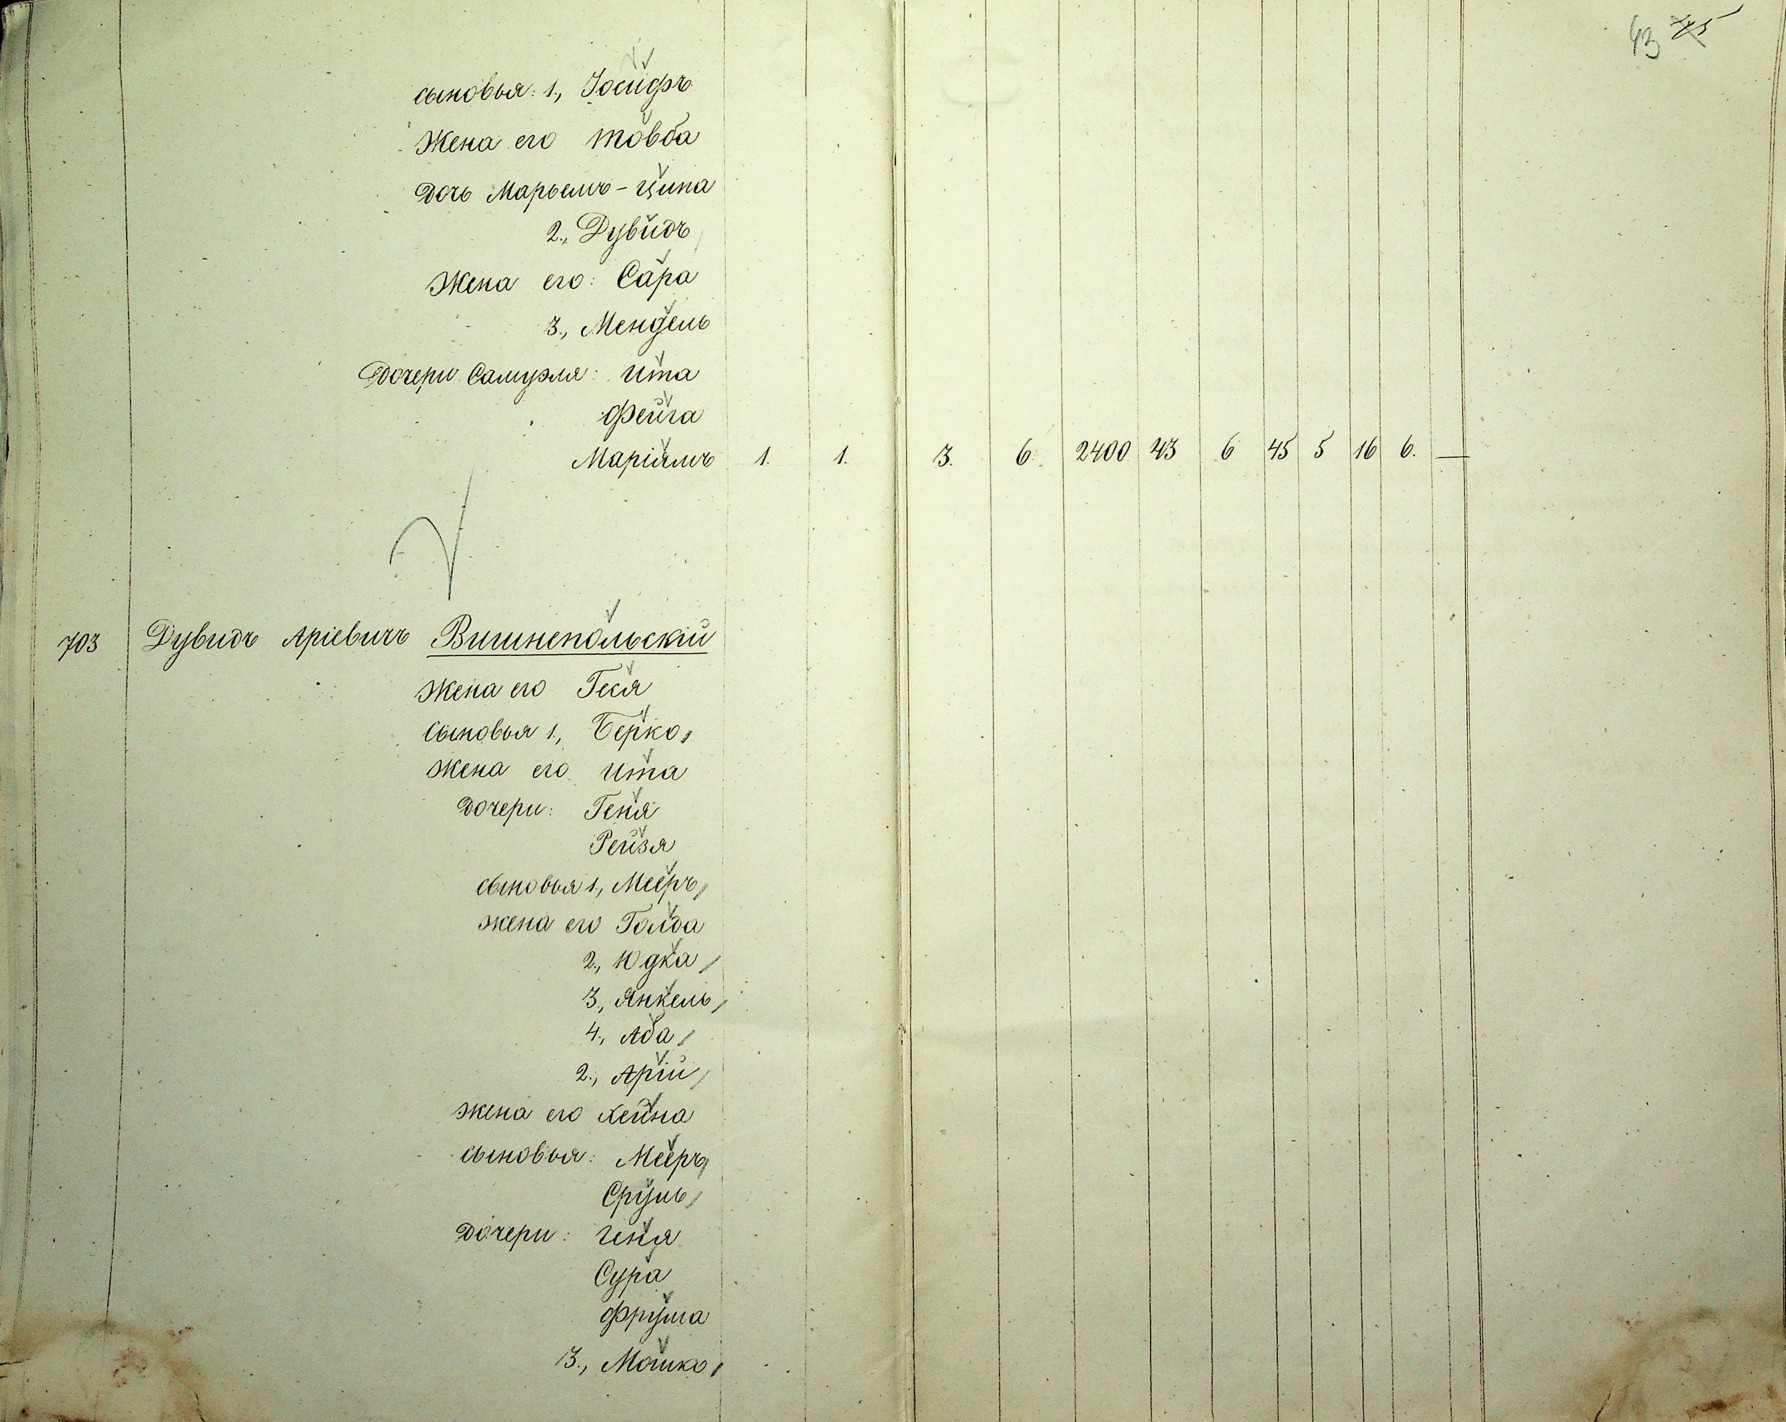 43 45
сыновья: 1., Іосифъ
Жена его Товба
Дочь Марьемъ-Ципа
2., Дувидъ
Жена его: Сара
3., Мендель
Дочери Самуэля: Ита
Фейга
Маріямъ 1. 1. 3. 6. 2400 43 6 45 5 16 6. —
703 Дувидъ Аріевичъ Вишнепольскій
Жена его Геся
Сыновья 1., Берко
Жена его Ита
Дочери: Геня
Рейзя
сыновья 1., Мееръ
жена его Голда
2., Юдка
3., Янкель
4., Аба
2., Арій
жена его Хейна
сыновья: Мееръ
Сруль
Дочери: Геня
Сура
Фрума
3., Мошко